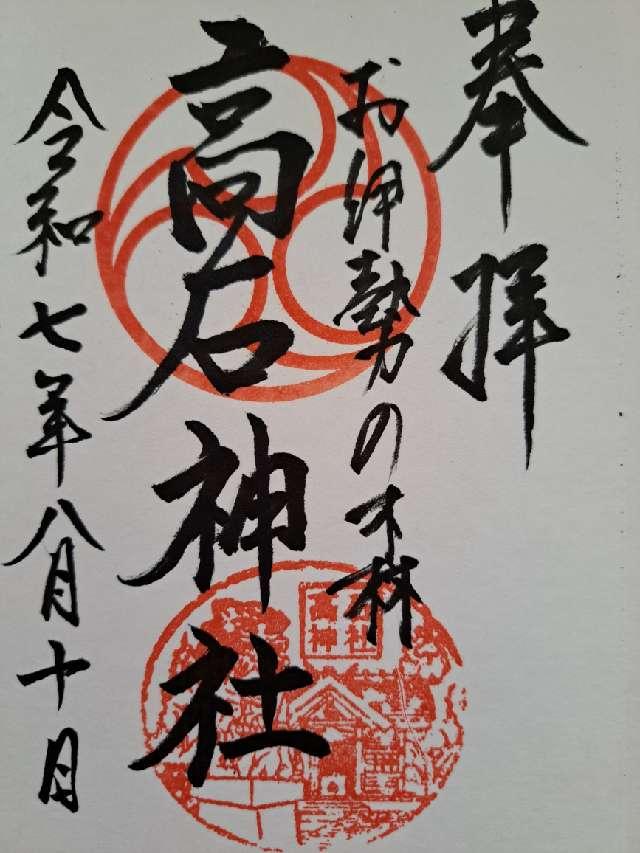 奉拝
お伊勢の森
高石神社
高石
神社
令和七年八月十日